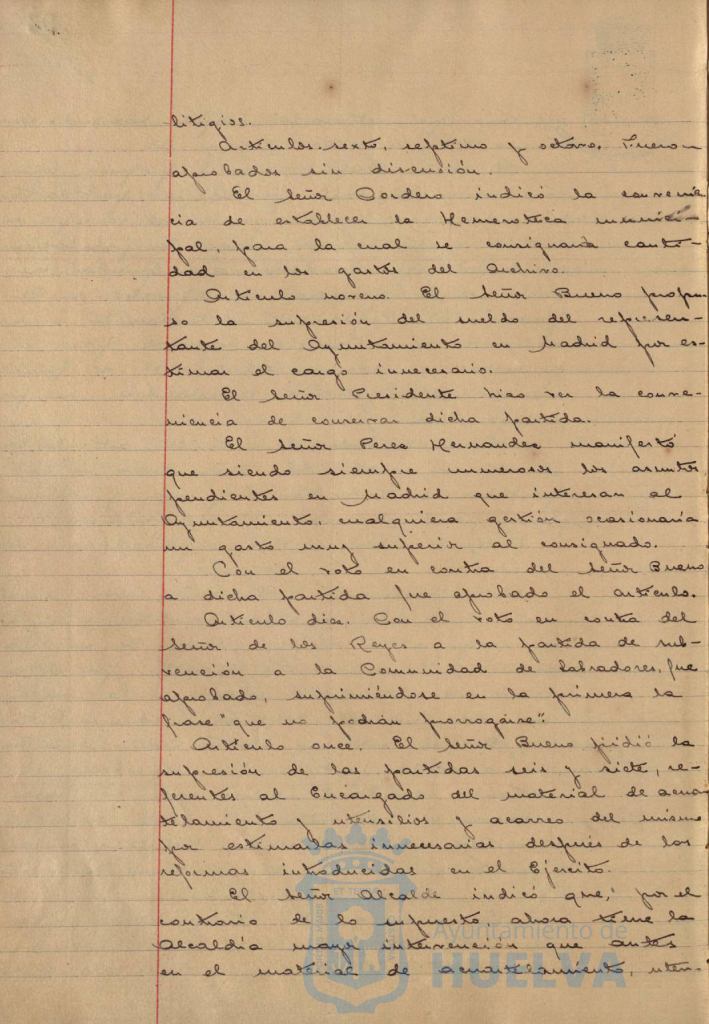 litigios.
Artículos sexto, septimo y octavo. Fueron
aprobados sin discusión.
El Señor Cordero indicó la convenien
cia de establecer la Hemeroteca munici-
pal, para la cual se consignará canti-
dad en los gastos del Archivo.
Artículo noveno. El Señor Bueno propu-
so la supresión del sueldo del represen-
tante del Ayuntamiento en Madrid por es-
timar el cargo innecesario.
El Señor Presidente hizo ver la conve-
niencia de conservar dicha partida.
El Señor Perez Hernandez manifestó
que siendo siempre numerosos los asuntos
pendientes en Madrid que interesan al
Ayuntamiento, cualquiera gestión ocasionaría
un gasto muy superior al consignado.
Con el voto en contra del Señor Bueno
a dicha partida fue aprobado el artículo.
Artículo diez. Con el voto en contra del
Señor de los Reyes a la partida de sub-
vención a la Comunidad de Labradores, fue
aprobado, suprimiéndose en la primera la
frase "que no podrán prorrogarse".
Artículo once. El Señor Bueno pidió la
supresión de las partidas seis y siete, re-
ferentes al Encargado del material de acuar
telamiento y utensilios y acarreo del mismo
por estimarlas innecesarias después de las
reformas introducidas en el Ejercito.
El Señor Alcalde indicó que, por el
contrario de lo supuesto ahora tiene la
Alcaldía mayor intervención que antes
en el material de acuartelamiento, uten-
Ayuntamiento de
HUELVA